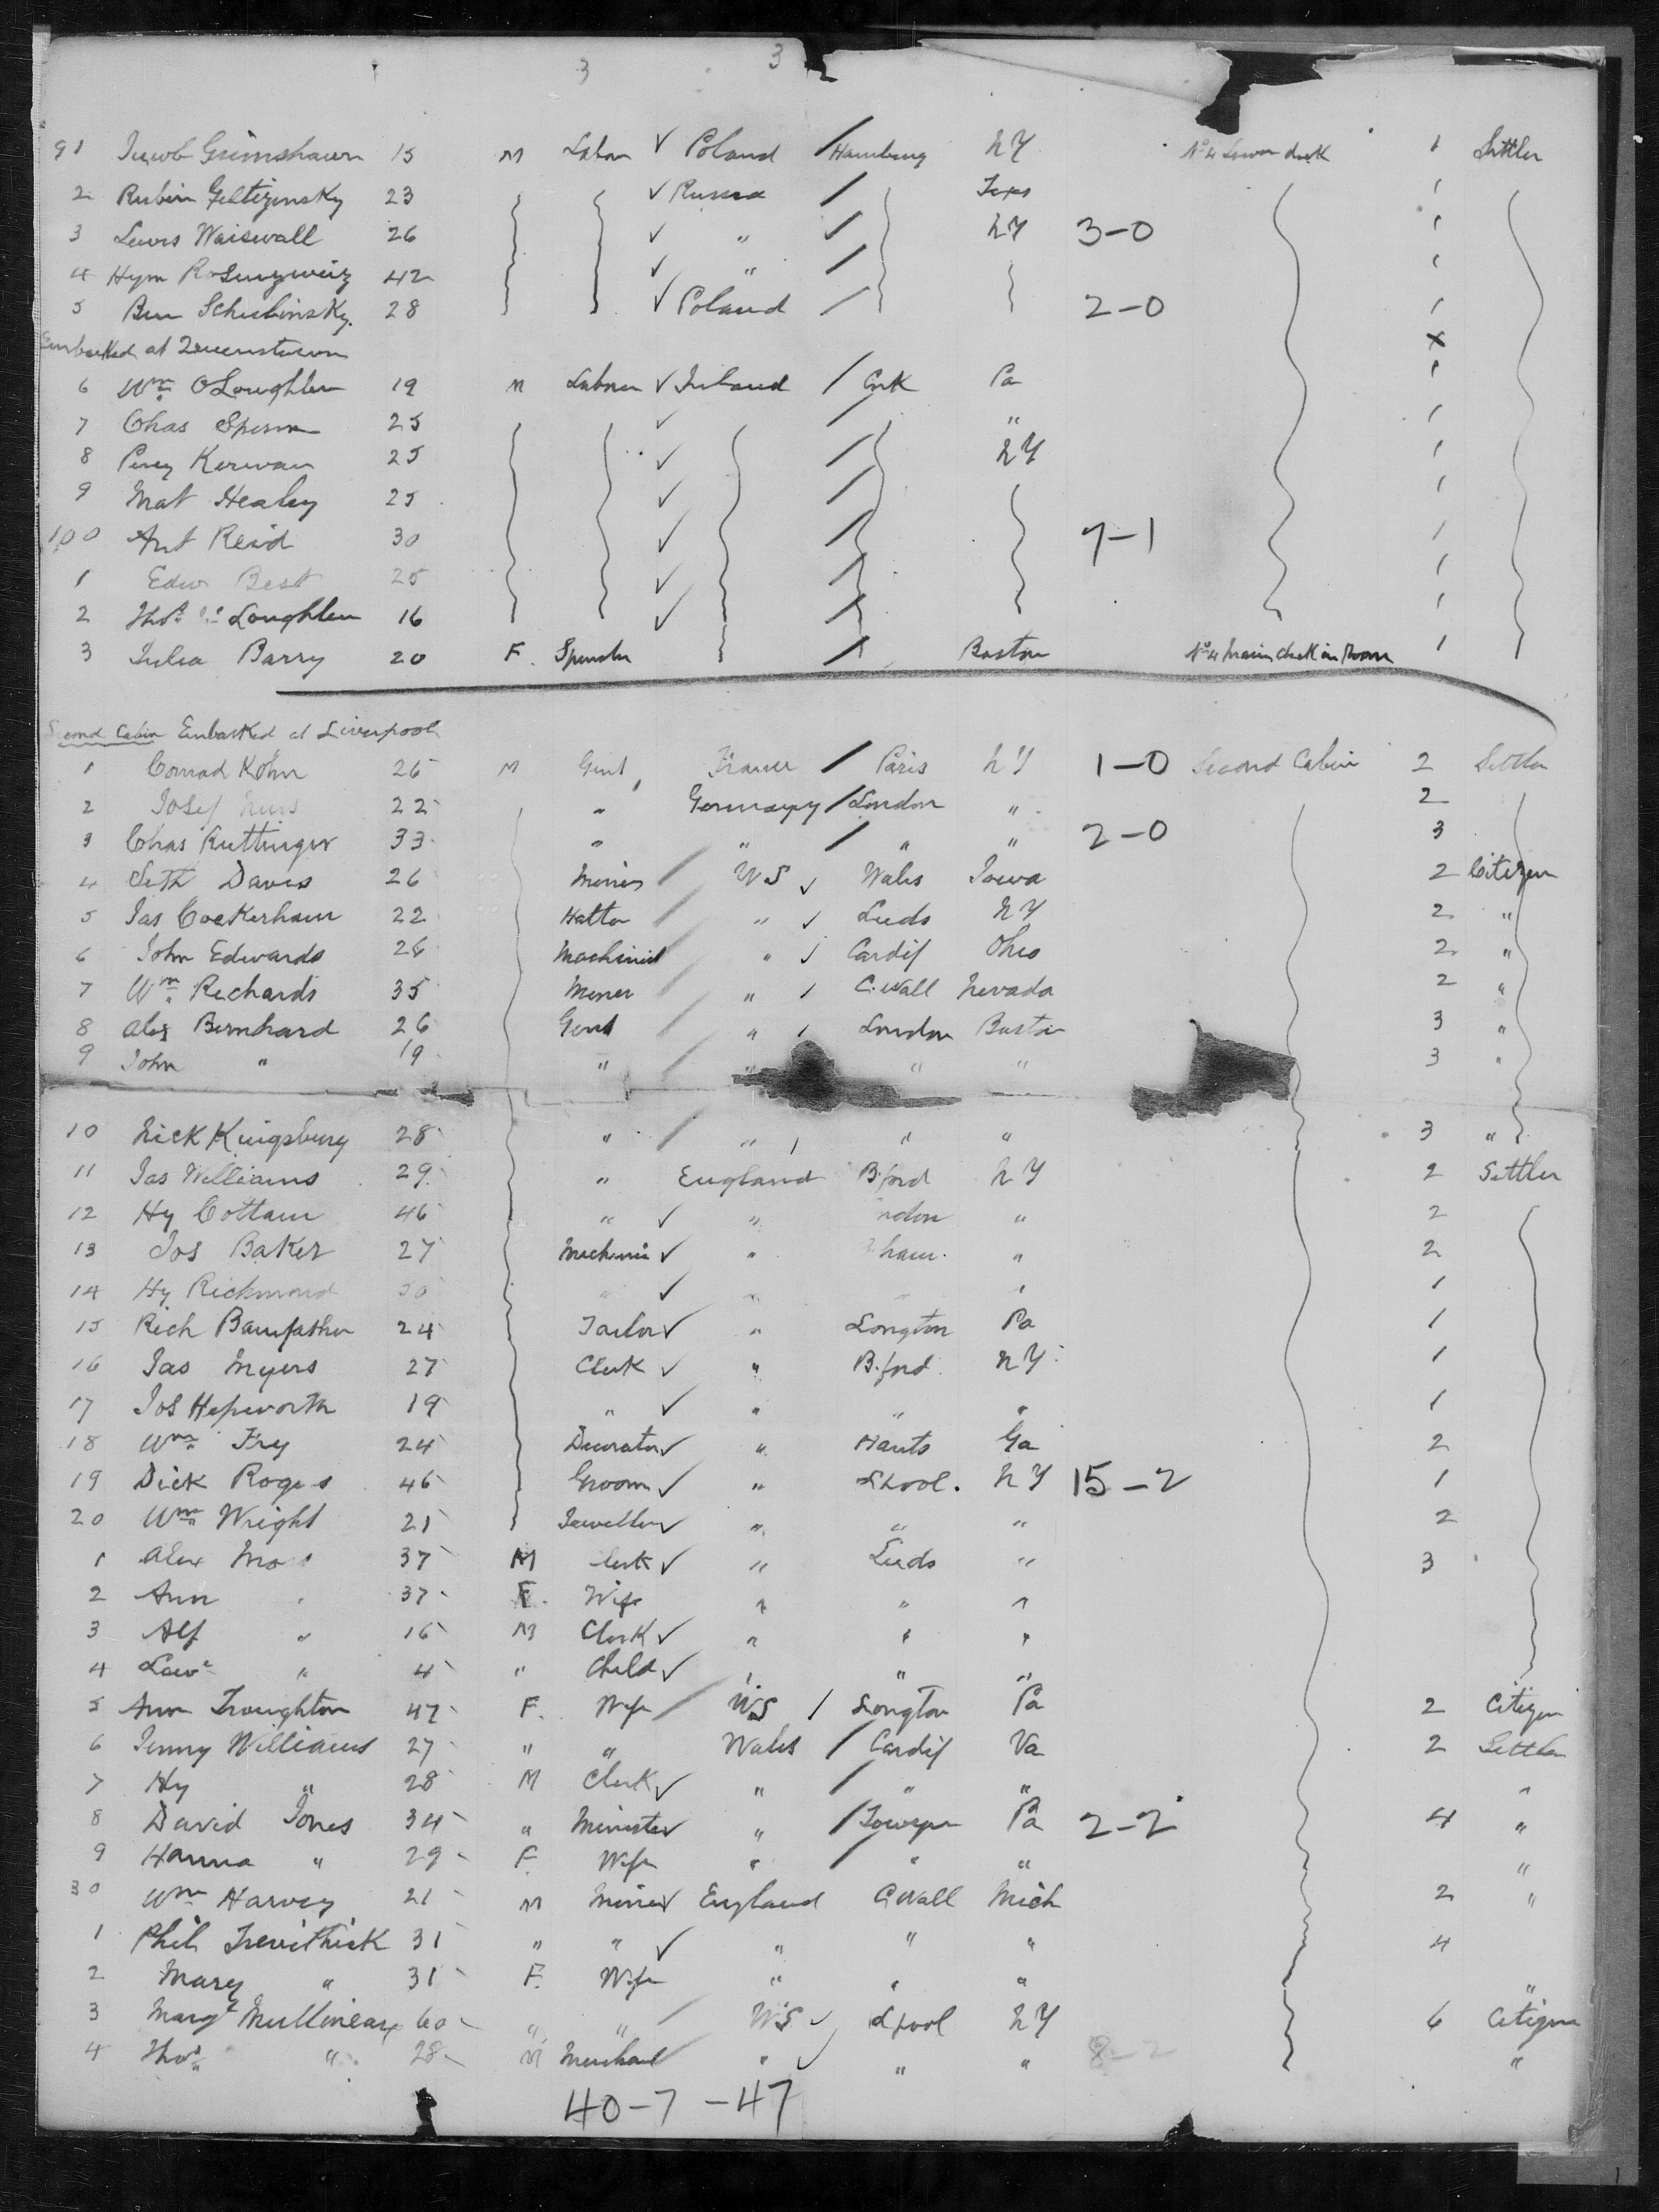 3 3
91 Jacob Grimshawer 15 M Labor ✓ Poland / Hamburg N Y No 4 Lower deck 1 Settler
2 Rubin 23 ✓ Russia / Texs 1
3 Lewis Waiswall 26 ✓ " ✓ N Y 3-0 1
4 Hym Rosenzweig 42 ✓ " / 1
5 Ben Schubinsky 28 ✓ Poland / 2-0 1
Embarked at Queenstown x
6 Wm O Loughlen 19 M Laborer ✓ Ireland / Cork Pa 1
7 Chas 25 ✓ / " 1
8 Percy Kerwan 25 ✓ / N Y 1
9 Mat Healey 25 ✓ / 1
100 Ant Reid 30 ✓ / 7-1 1
1 Edw Best 25 ✓ / 1
2 Thos Loughlen 16 ✓ / 1
3 Julia Barry 20 F. Spinster / Boston No 4 Main deck in Room 1
Second Cabin Embarked at Liverpool
1 Conrad Kohn 26 M Gent France / Paris N Y 1-0 Second Cabin 2 Settler
2 Josef 22 " Germany / London " 2
3 Chas Ruttinger 33 " " / " " 2-0 3
4 Seth Davis 26 Miner / U S ✓ Wales Iowa 2 Citizen
5 Jas Cockerham 22 Hatter / " ✓ Leeds N Y 2 "
6 John Edwards 26 Machinist / " ✓ Cardif Ohio 2 "
7 Wm Richards 35 Miner / " / C. wall Nevada 2 "
8 Alex Bernhard 26 Gent / " / London Boston 3 "
9 John " 19 " / " " " 3 "
10 Nick Kingsbury 28 " / " / " " 3 "
11 Jas Williams 29 " England B.ford N Y 2 Settler
12 Hy Cottam 46 " ✓ " ndon " 2
13 Jos Baker 27 Mechanic ✓ " ham. " 2
14 Hy Richmond 30 " ✓ " " " 1
15 Rich Bamfather 24 Tailor ✓ " Longton Pa 1
16 Jas Myers 27 Clerk ✓ " B.ford N Y 1
17 Jos Hepworth 19 " ✓ " " " 1
18 Wm Fry 24 Decorator ✓ " Hants Ga 2
19 Dick Roge s 46 Groom ✓ " Lpool. N Y 15-2 1
20 Wm Wright 21 Jeweller ✓ " " " 2
1 Alex Mo s 37 M lerk ✓ " Leeds " 3
2 Ann " 37 F. Wife " " "
3 Alf " 16 M Clerk ✓ " " "
4 Lawe " 4 " Child ✓ " " "
5 Ann Troughton 47 F. Wife / U S / Longton Pa 2 Citizen
6 Jenny Williams 27 " " Wales / Cardif Va 2 Settler
7 Hy " 28 M Clerk ✓ " / " " "
8 David Jones 34 " Minister ✓ " / Pa 2-2 4 "
9 Hanna " 29 F. Wife " / " " "
30 Wm Harvey 21 M Miner ✓ England C. Wall Mich 2 "
1 Phil Trevithick 31 " " ✓ " " " 4
2 Mary " 31 F. Wife " " " "
3 Margt Mullineax 60 " " / U S ✓ Lpool N Y 6 Citizen
4 Thos " 28 M Merchant / " ✓ " " 8-2 "
40-7-47